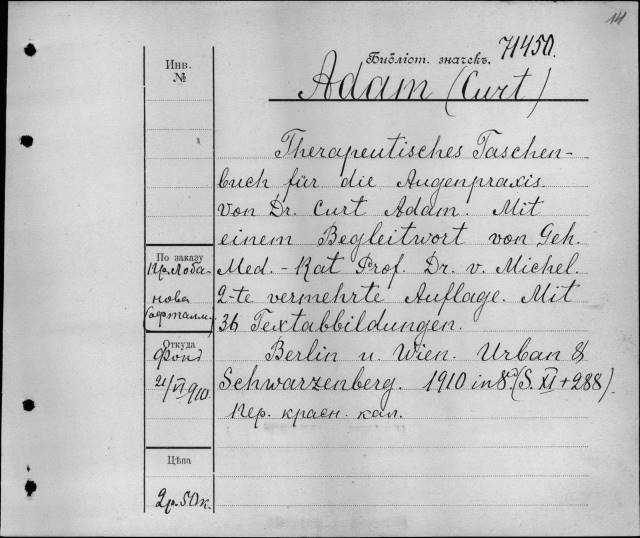 14
Библіот. значекъ. 71450.
Adam (Curt)
Инв.
№
Therapeutisches Taschen-
buch für die Augenpraxis.
Von Dr. Curt Adam. Mit
einem Begleitwort von Geh.
Med.-Rat Prof. Dr. v. Michel.
2-te vermehrte Auflage. Mit
36 Textabbildungen.
Berlin u. Wien. Urban &
Schwarzenberg. 1910 in 8º (S. XI + 288).
пер. красн. кал.
По заказу
Пр. Лоба-
нова
(офталм.)
Откуда
Фонд
21/VI 910.
Цѣна
2р. 50к.